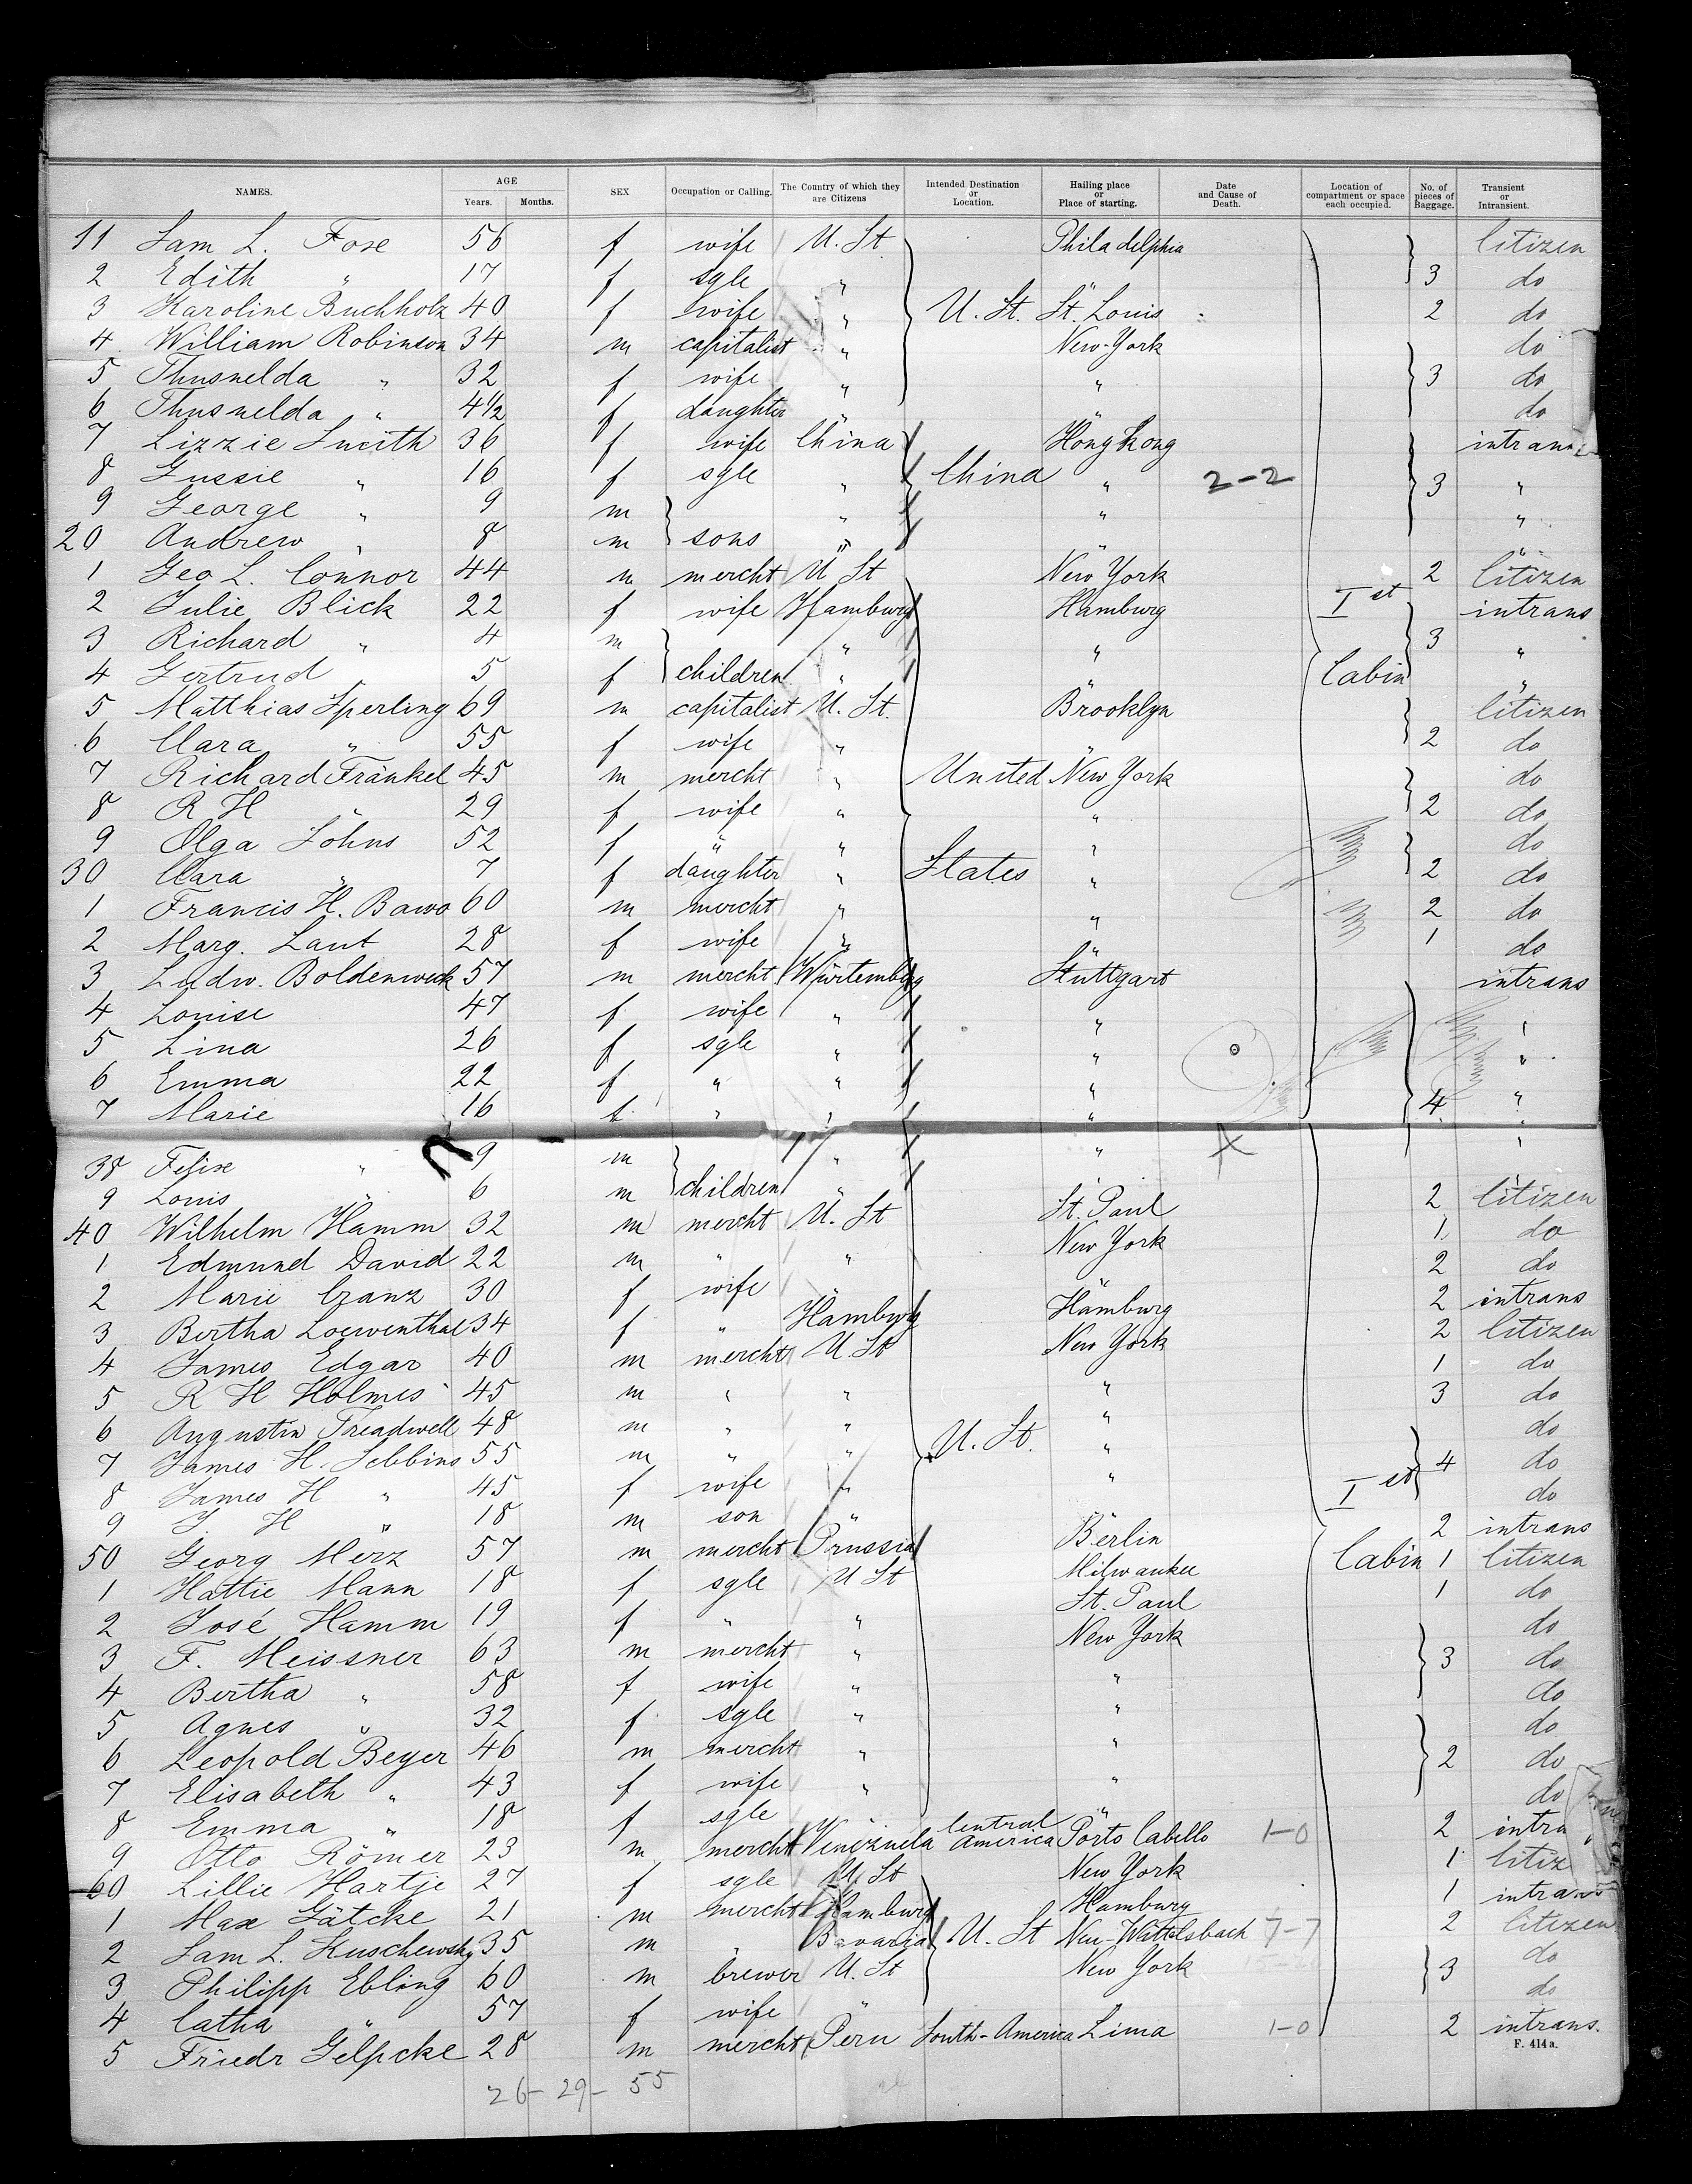 NAMES. AGE Years. Months. SEX Occupation or Calling. The Country of which they are Citizens Intended Destination or Location. Hailing place or Place of starting. Date and Cause of Death. Location of compartment or space each occupied. No. of pieces of Baggage. Transient or Intransient.
11 Sam L. Fose 56 f wife U. St Philadelphia Citizen
2 Edith " 17 f sgle " " 3 do
3 Karoline Buchholz 40 f wife " U. St. St. Louis 2 do
4 William Robinson 34 m capitalist " New-York do
5 Thusnelda " 32 f wife " " 3 do
6 Thusnelda " 4½ f daughter " " do
7 Lizzie Smith 36 f wife China Hong kong intrans
8 Gussie " 16 f sgle " China " 2-2 3 "
9 George " 9 m " " "
20 Andrew " 8 m sons " " "
1 Geo L. Connor 44 m mercht U St New York 2 Citizen
2 Julie Blick 22 f wife Hamburg Hamburg Ist intrans
3 Richard " 4 m " " 3 "
4 Gertrud " 5 f children " " Cabin "
5 Matthias Sperling 69 m capitalist U. St. Brooklyn Citizen
6 Clara " 55 f wife " " 2 do
7 Richard Fränkel 45 m mercht " United New York do
8 R H " 29 f wife " " 2 do
9 Olga Johns 52 f " " " do
30 Clara " 7 f daughter " States " 2 do
1 Francis H. Bawo 60 m mercht " " 2 do
2 Marg. Laut 28 f wife " " 1 do
3 Ludw. Boldenweck 57 m mercht Würtemberg Stuttgart intrans
4 Louise 47 f wife " " "
5 Lina 26 f sgle " " "
6 Emma 22 f " " " "
7 Marie 16 f " " " 4 "
38 Felixe " 9 m " " "
9 Louis " 6 m children " "
40 Wilhelm Hamm 32 m mercht U. St St. Paul 2 Citizen
1 Edmund David 22 m " " New York 1 do
2 Marie Cranz 30 f wife " " 2 do
3 Bertha Loewenthal 34 f " Hamburg Hamburg 2 intrans
4 James Edgar 40 m mercht U. St New York 2 Citizen
5 R H Holmes 45 m " " " 1 do
6 Augustin Treadwell 48 m " " " 3 do
7 James H. Sebbins 55 m " " U. St. " do
8 James H " 45 f wife " " 4 do
9 J. H " 18 m son " " Ist do
50 Georg Merz 57 m mercht Prussia Berlin 2 intrans
1 Hattie Mann 18 f sgle U St Milwaukee Cabin 1 Citizen
2 José Hamm 19 f " " St. Paul 1 do
3 F. Meissner 63 m mercht " New York do
4 Bertha " 58 f wife " " 3 do
5 Agnes " 32 f sgle " " do
6 Leopold Beyer 46 m mercht " " do
7 Elisabeth " 43 f wife " " 2 do
8 Emma " 18 f sgle " " do
9 Otto Römer 23 m mercht Venezuela Central America Porto Cabello 1-0 2 intra
60 Lillie Hartje 27 f sgle U. St New York 1 Citiz
1 Max Gätcke 21 m mercht Hamburg Hamburg 1 intrans
2 Sam L. Kuschewsky 35 m " Bavaria U. St Neu-Wittelsbach 7-7 2 Citizen
3 Philipp Ebling 60 m brewer U. St New York 3 do
4 Catha " 57 f wife " " do
5 Friedr Gelpcke 28 m mercht Peru South-America Lima 1-0 2 intrans.
F. 414a.
26- 29- 55